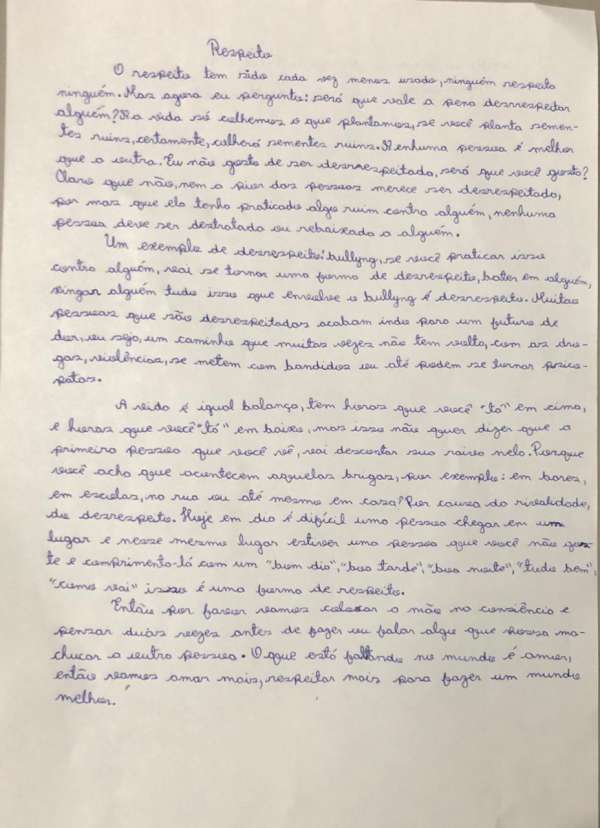 Respeito
O respeito tem sido cada vez menos usado, ninguém respeita
ninguém. Mas agora eu pergunto: será que vale a pena desrespeitar
alguém? Na vida só colhemos o que plantamos, se você planta semen-
tes ruins, certamente, colherá sementes ruins. Nenhuma pessoa é melhor
que a outra. Eu não gosto de ser desrrespeitada, será que você gosta?
Claro que não, nem a pior das pessoas merece ser desrespeitada,
por mas que ela tenha praticado algo ruim contra alguém, nenhuma
pessoa deve ser destratada ou rebaixada a alguém.
Um exemplo de desrespeito: bullyng, se você praticar isso
contra alguém, vai se tornar uma forma de desrespeito, bater em alguém,
xingar alguém tudo isso que envolve o bullyng é desrespeito. Muitas
pessoas que são desrespeitadas acabam indo para um futuro de
dor, ou seja, um caminho que muitas vezes não tem volta, com as dro-
gas, violências, se metem com bandidos ou até podem se tornar psico-
patas.
A vida é igual balança, tem horas que você "tá" em cima,
e horas que você "tá" em baixo, mas isso não quer dizer que a
primeira pessoa que você vê, vai descontar sua raiva nela. Porque
você acha que acontecem aquelas brigas, por exemplo: em bares,
em escolas, na rua ou até mesmo em casa? Por causa da rivalidade,
do desrespeito. Hoje em dia é difícil uma pessoa chegar em um
lugar e nesse mesmo lugar estiver uma pessoa que você não gos-
te e comprimenta-lá com um "bom dia", "boa tarde", "boa noite", "tudo bem",
"como vai" isso é uma forma de respeito.
Então por favor vamos colocar a mão na consciência e
pensar duas vezes antes de fazer ou falar algo que possa ma-
chucar a outra pessoa. O que está faltando no mundo é amor,
então vamos amar mais, respeitar mais para fazer um mundo
melhor.